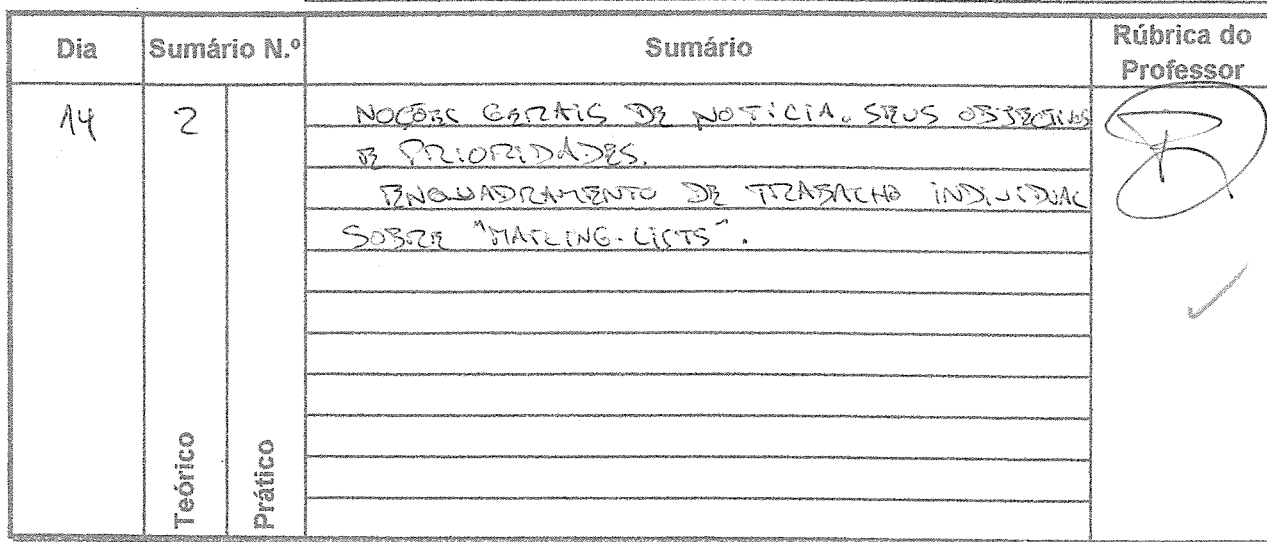 Dia Sumário N.º Sumário Rúbrica do Professor
14 2 NOÇÕES GERAIS DE NOTICIA. SEUS OBJECTIVOS
E PRIORIDADES.
ENQUADRAMENTO DE TRABALHO INDIVIDUAL
SOBRE "MAILING-LISTS".
Teórico Prático